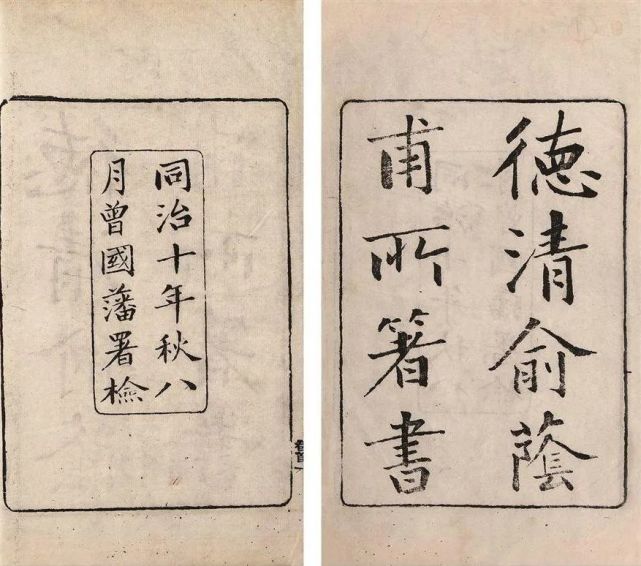 德清俞蔭
甫所箸書
同治十年秋八
月曾國藩署檢